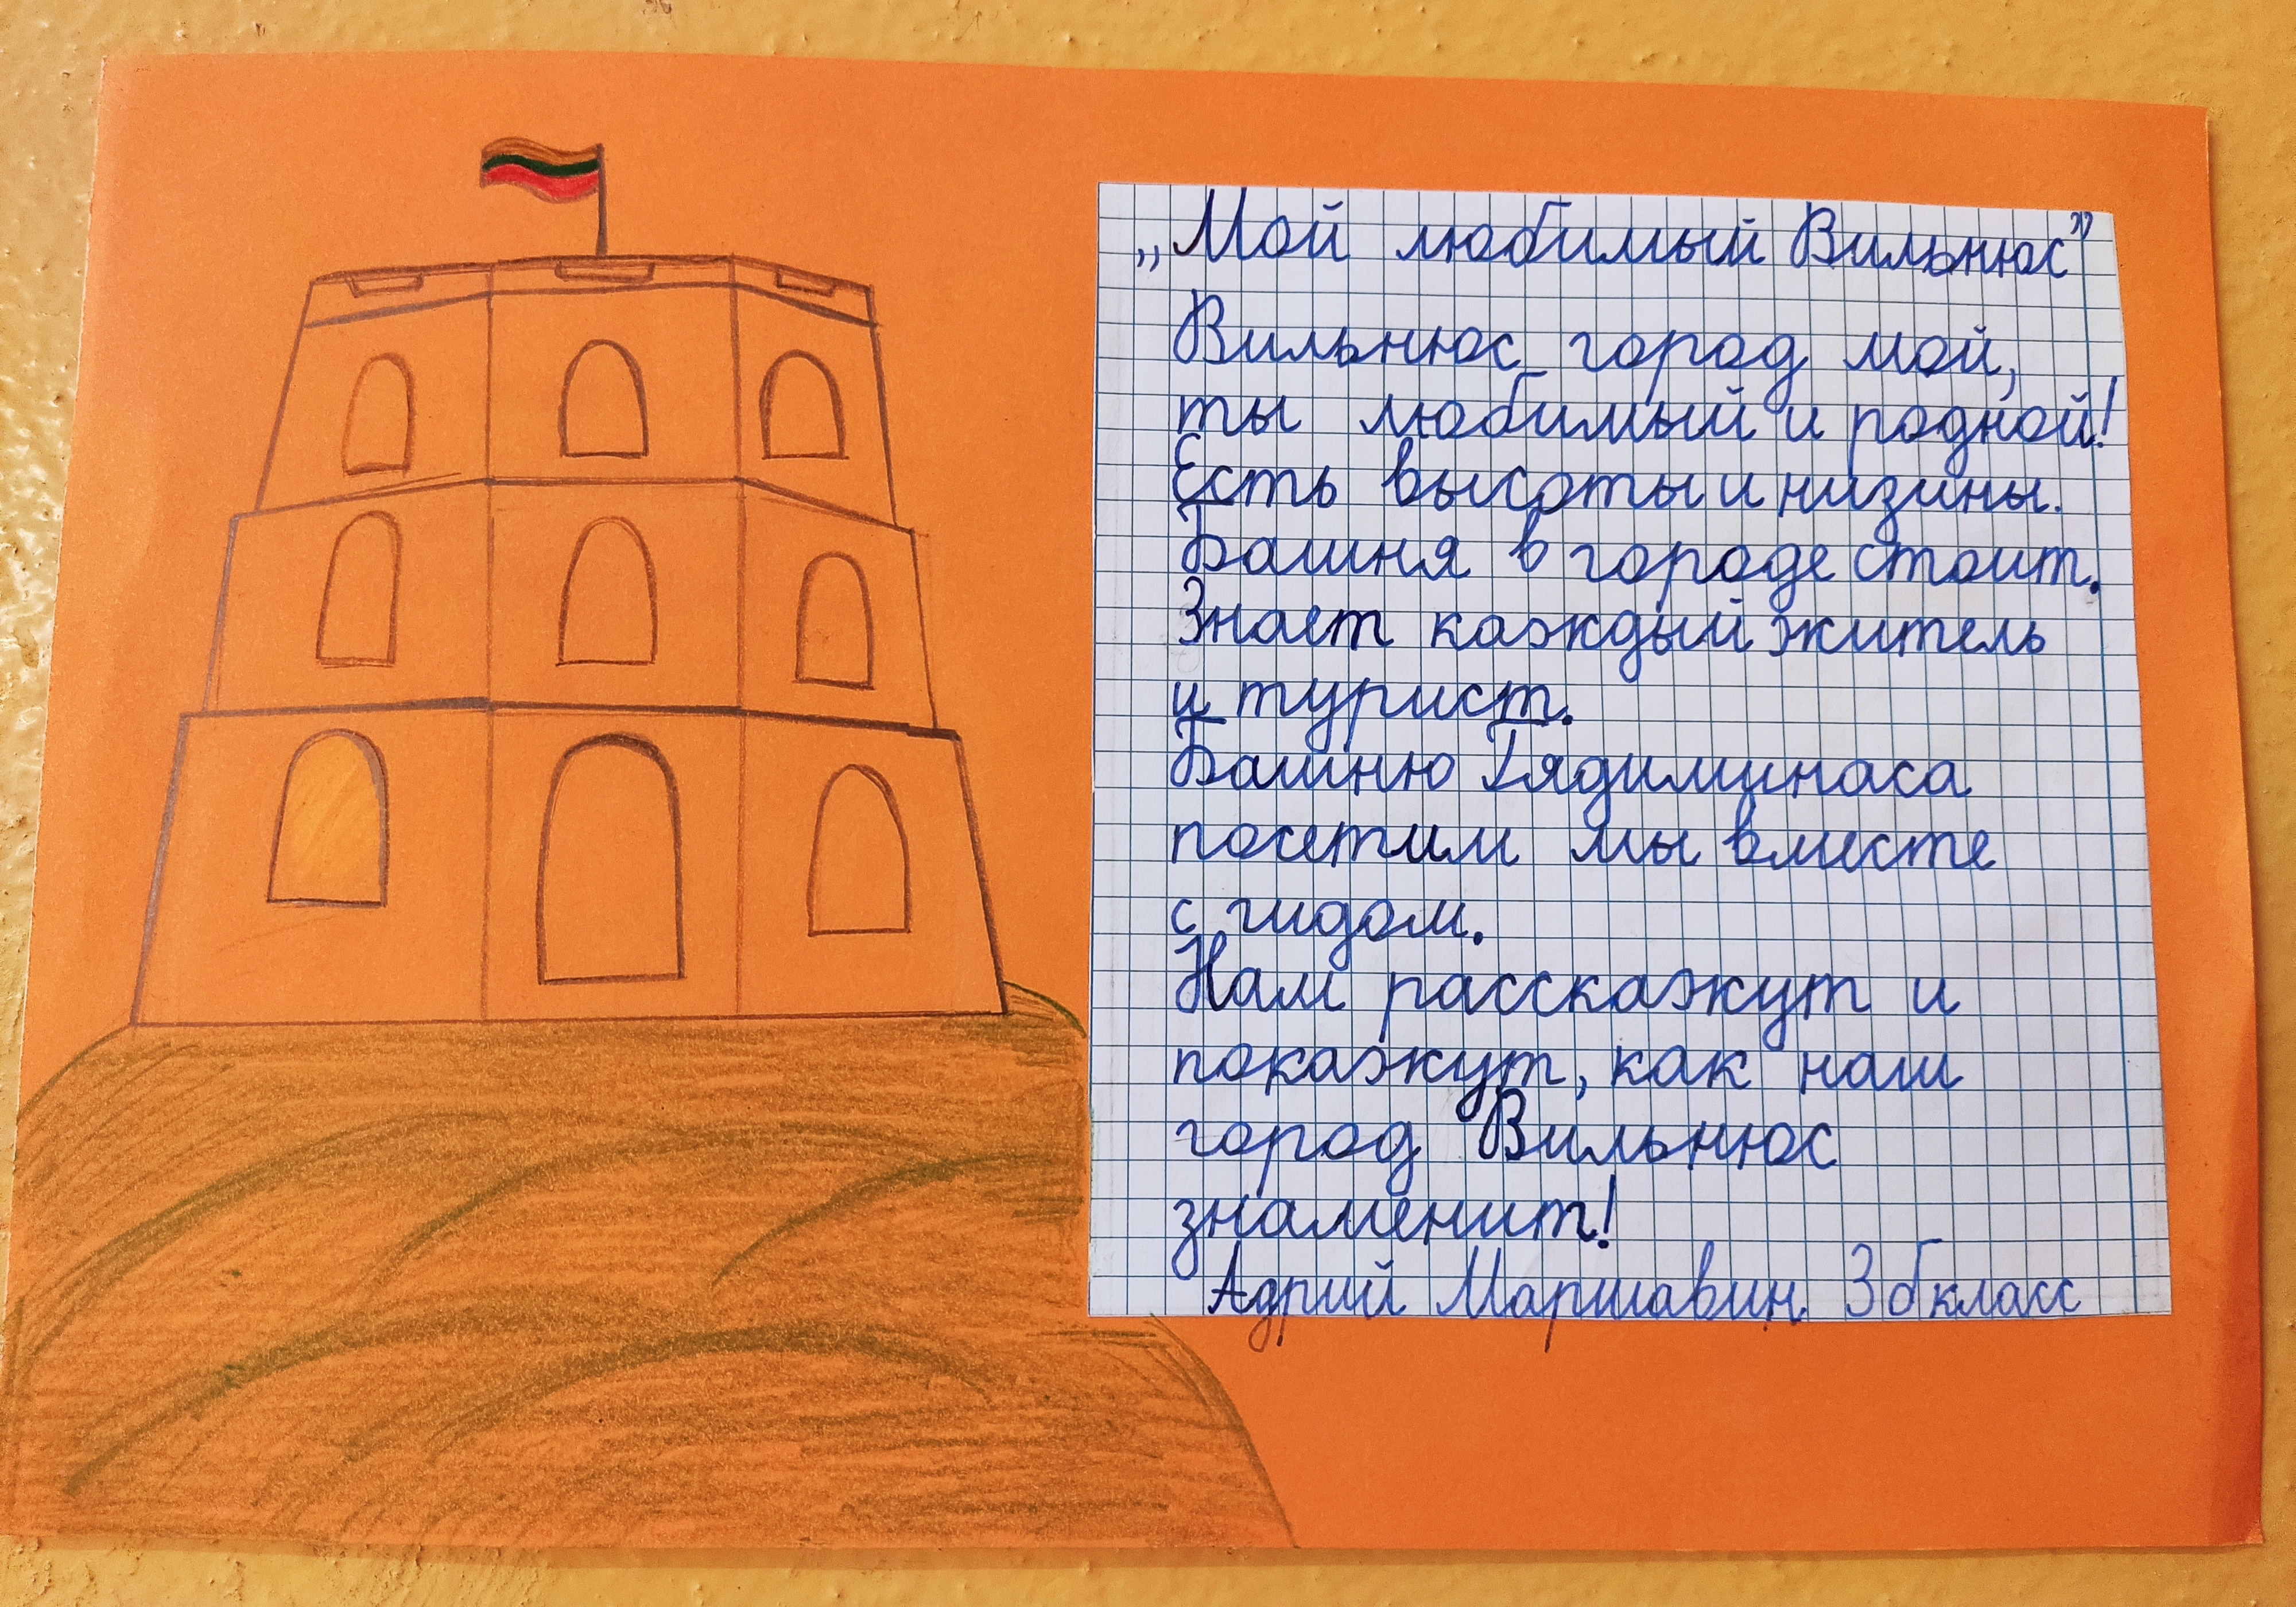 „Мой любимый Вильнюс”
Вильнюс город мой,
ты любимый и родной!
Есть высоты и низины.
Башня в городе стоит.
Знает каждый житель
и турист.
Башню Гядиминаса
посетим мы вместе
с гидом.
Нам расскажут и
покажут, как наш
город Вильнюс
знаменит!
Адрий Маршавин 3б класс